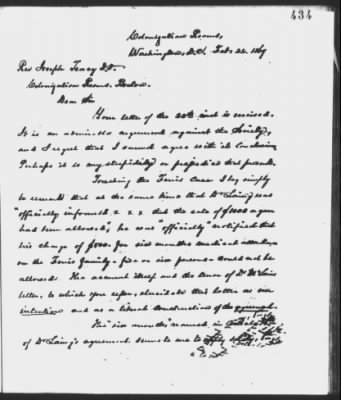 434
Colonization Rooms,
Washington, D.C. Feb: 22. 1869
Rev Joseph Tracy D.D.
Colonization Rooms, Boston.
Dear Sir
Your letter of the 20th inst is received.
It is an admirable argument against the Society,
and I regret that I cannot agree with its conclusions
Perhaps it is my stupidity or prejudice that prevents.
Touching the Ferris Case I beg simply
to remark that at the same time that Dr Laing was
"officially informed x x x that the sale of $1000 a year
had been allowed", he was "officially" notified that
his charge of $500. for six months medical attendance
on the Ferris family - five or six persons could not be
allowed. His account itself and the tenor of Dr
letter, to which you refer, elucidate this latter as
intention and as a literal construction of the agreement.
The "six months" named in
of Dr Laing's agreement seems to me to apply